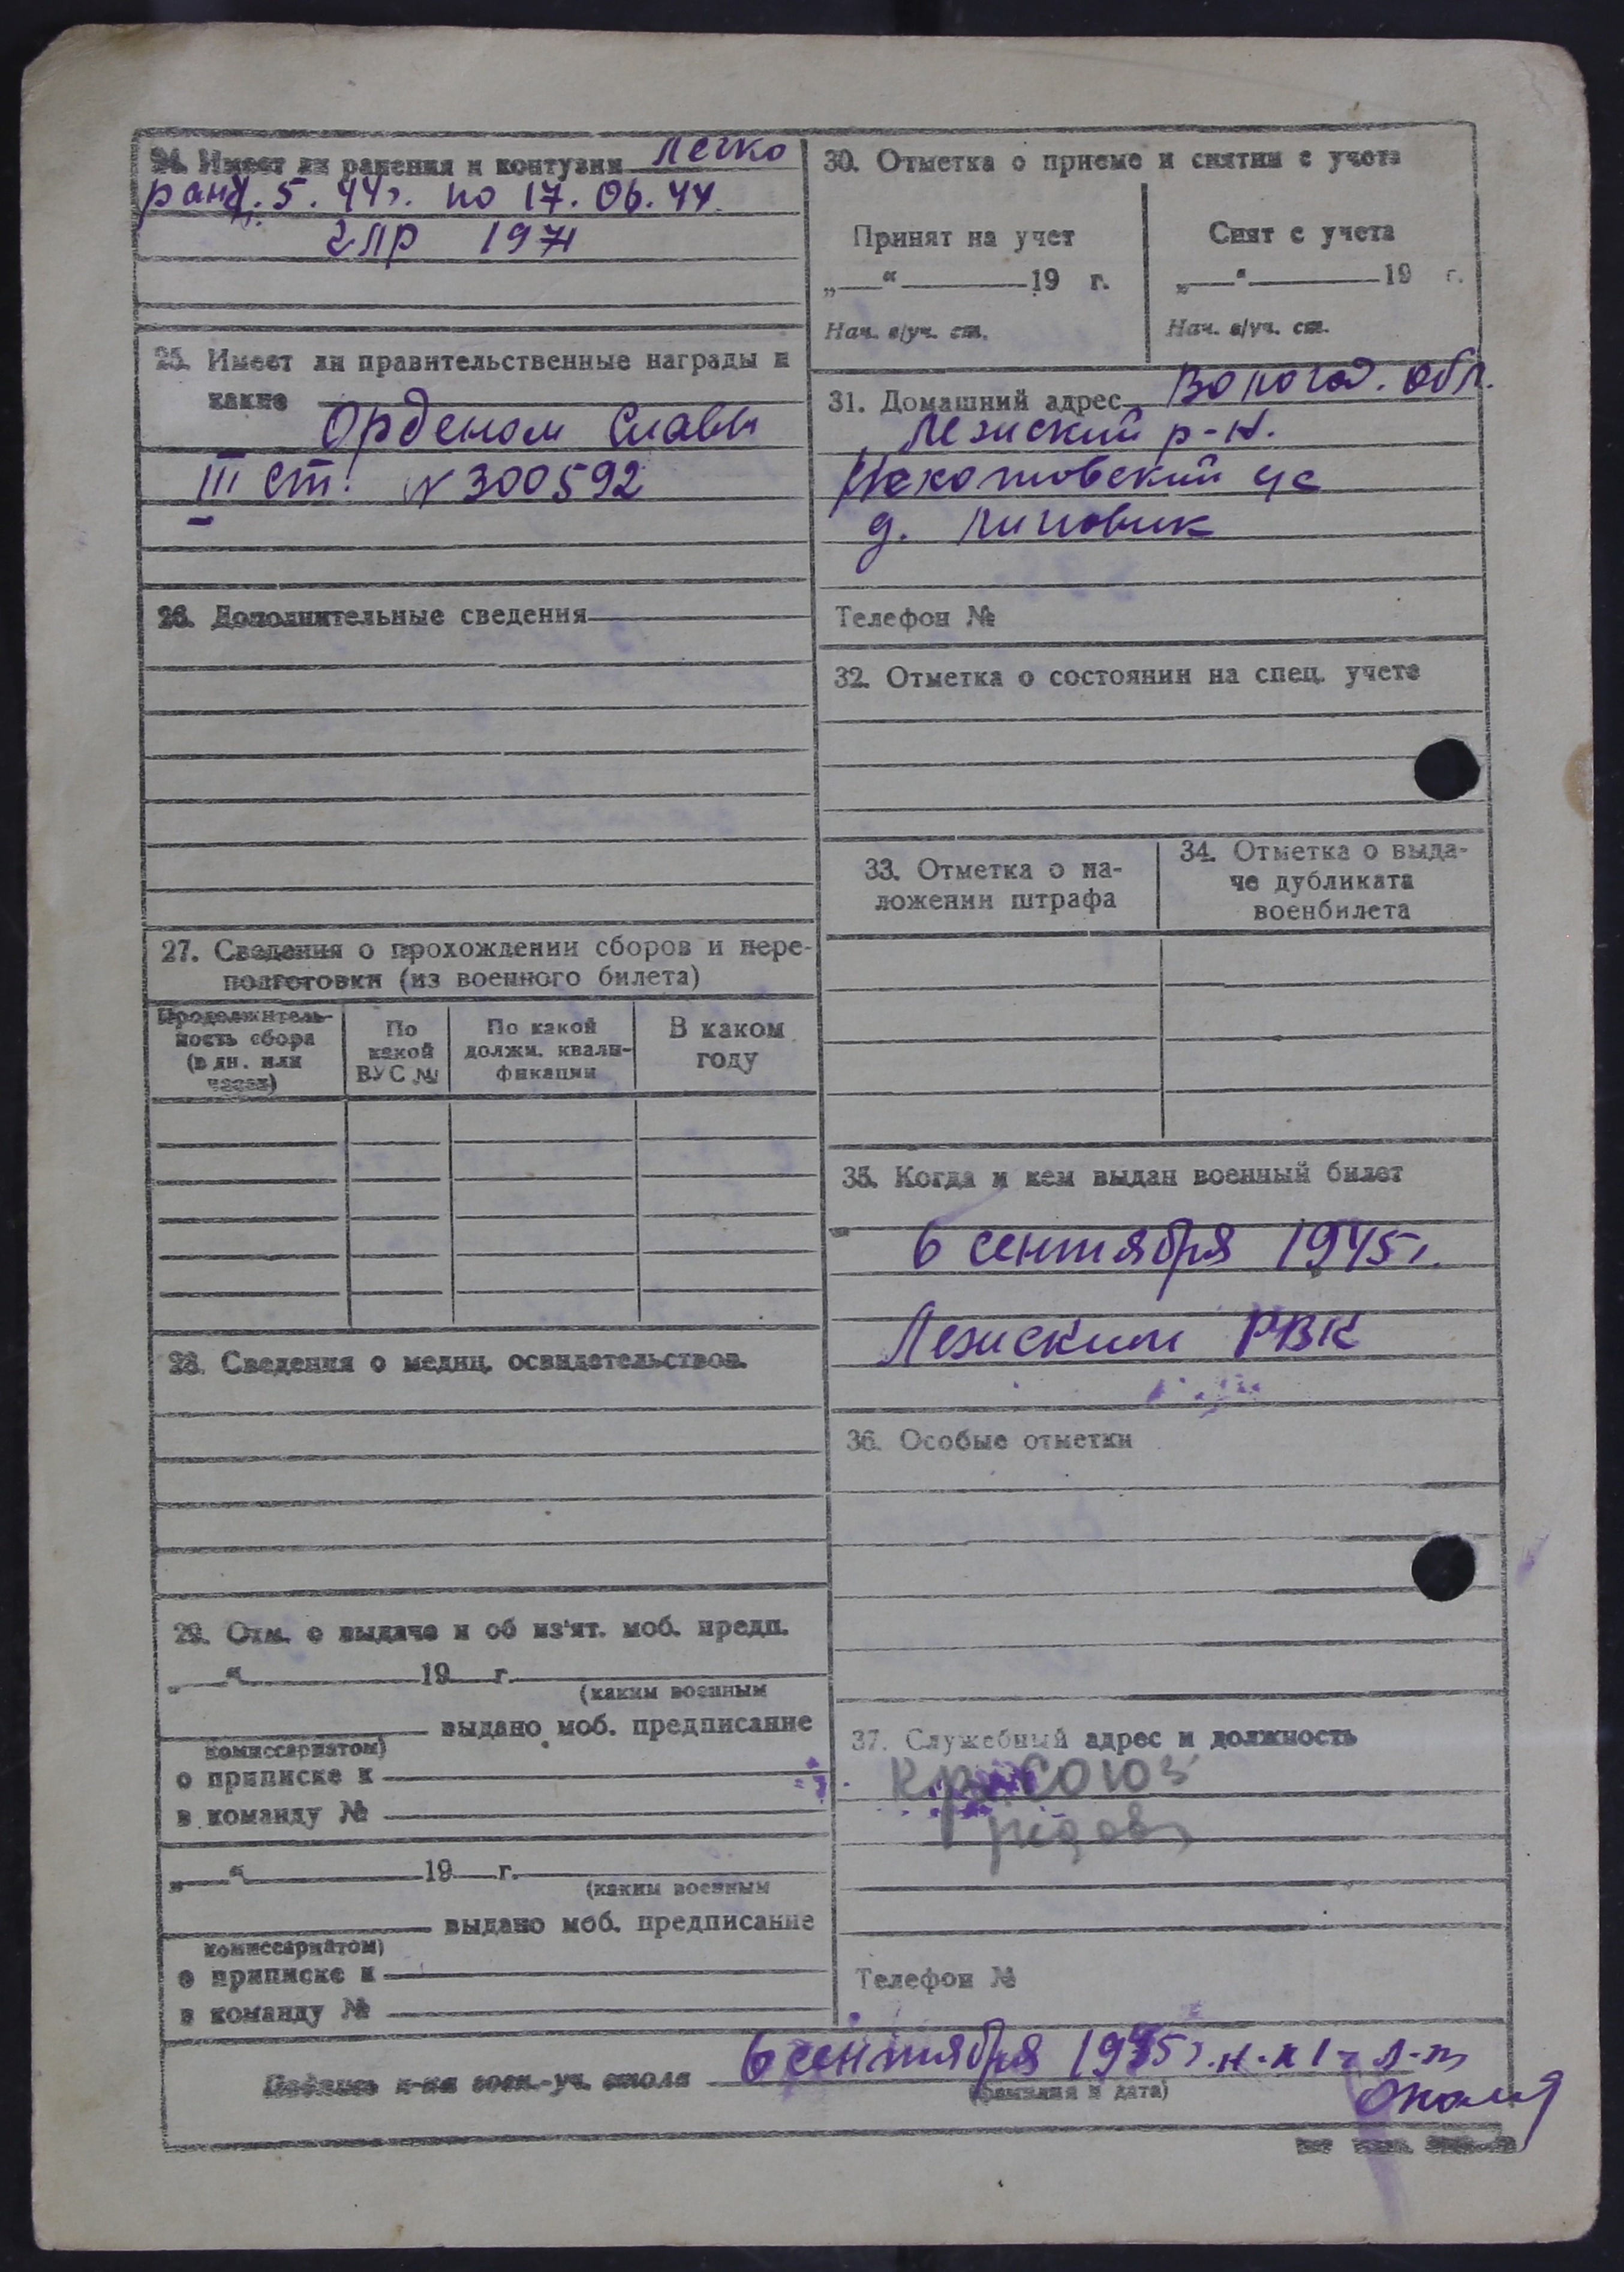 24. Имеет ли ранения и контузии легко
ран. 5. 44г. по 17. 06. 44
ГЛР 1971
25. Имеет ли правительственные награды и
какие
Орденом Славы
III ст. N 300592
26. Дополнительные сведения
27. Сведения о прохождении сборов и пере-
подготовки (из военного билета)
Продолжитель-
ность сбора
(в дн. или
часах)
По
какой
ВУС №
По какой
должн. квали-
фикации
В каком
году
28. Сведения о медиц. освидетельствов.
29. Отм. о выдаче и об из'ят. моб. предп.
„ “ 19 г.
(каким военным
выдано моб. предписание
комиссариатом)
о приписке к
в команду №
„ “ 19 г.
(каким военным
выдано моб. предписание
комиссариатом)
о приписке к
в команду №
30. Отметка о приеме и снятии с учета
Принят на учет
„ “ 19 г.
Нач. в/уч. ст.
Снят с учета
„ “ 19 г.
Нач. в/уч. ст.
31. Домашний адрес Вологод. обл.
Лежский р-н.
с/с
д. Липовик
Телефон №
32. Отметка о состоянии на спец. учете
33. Отметка о на-
ложении штрафа
34. Отметка о выда-
че дубликата
военбилета
35. Когда и кем выдан военный билет
6 сентября 1945г.
Лежским РВК
36. Особые отметки
37. Служебный адрес и должность
Телефон №
Подпись н-ка воен.-уч. стола 6 сентября 1945г. н.к 1-
(фамилия и дата)